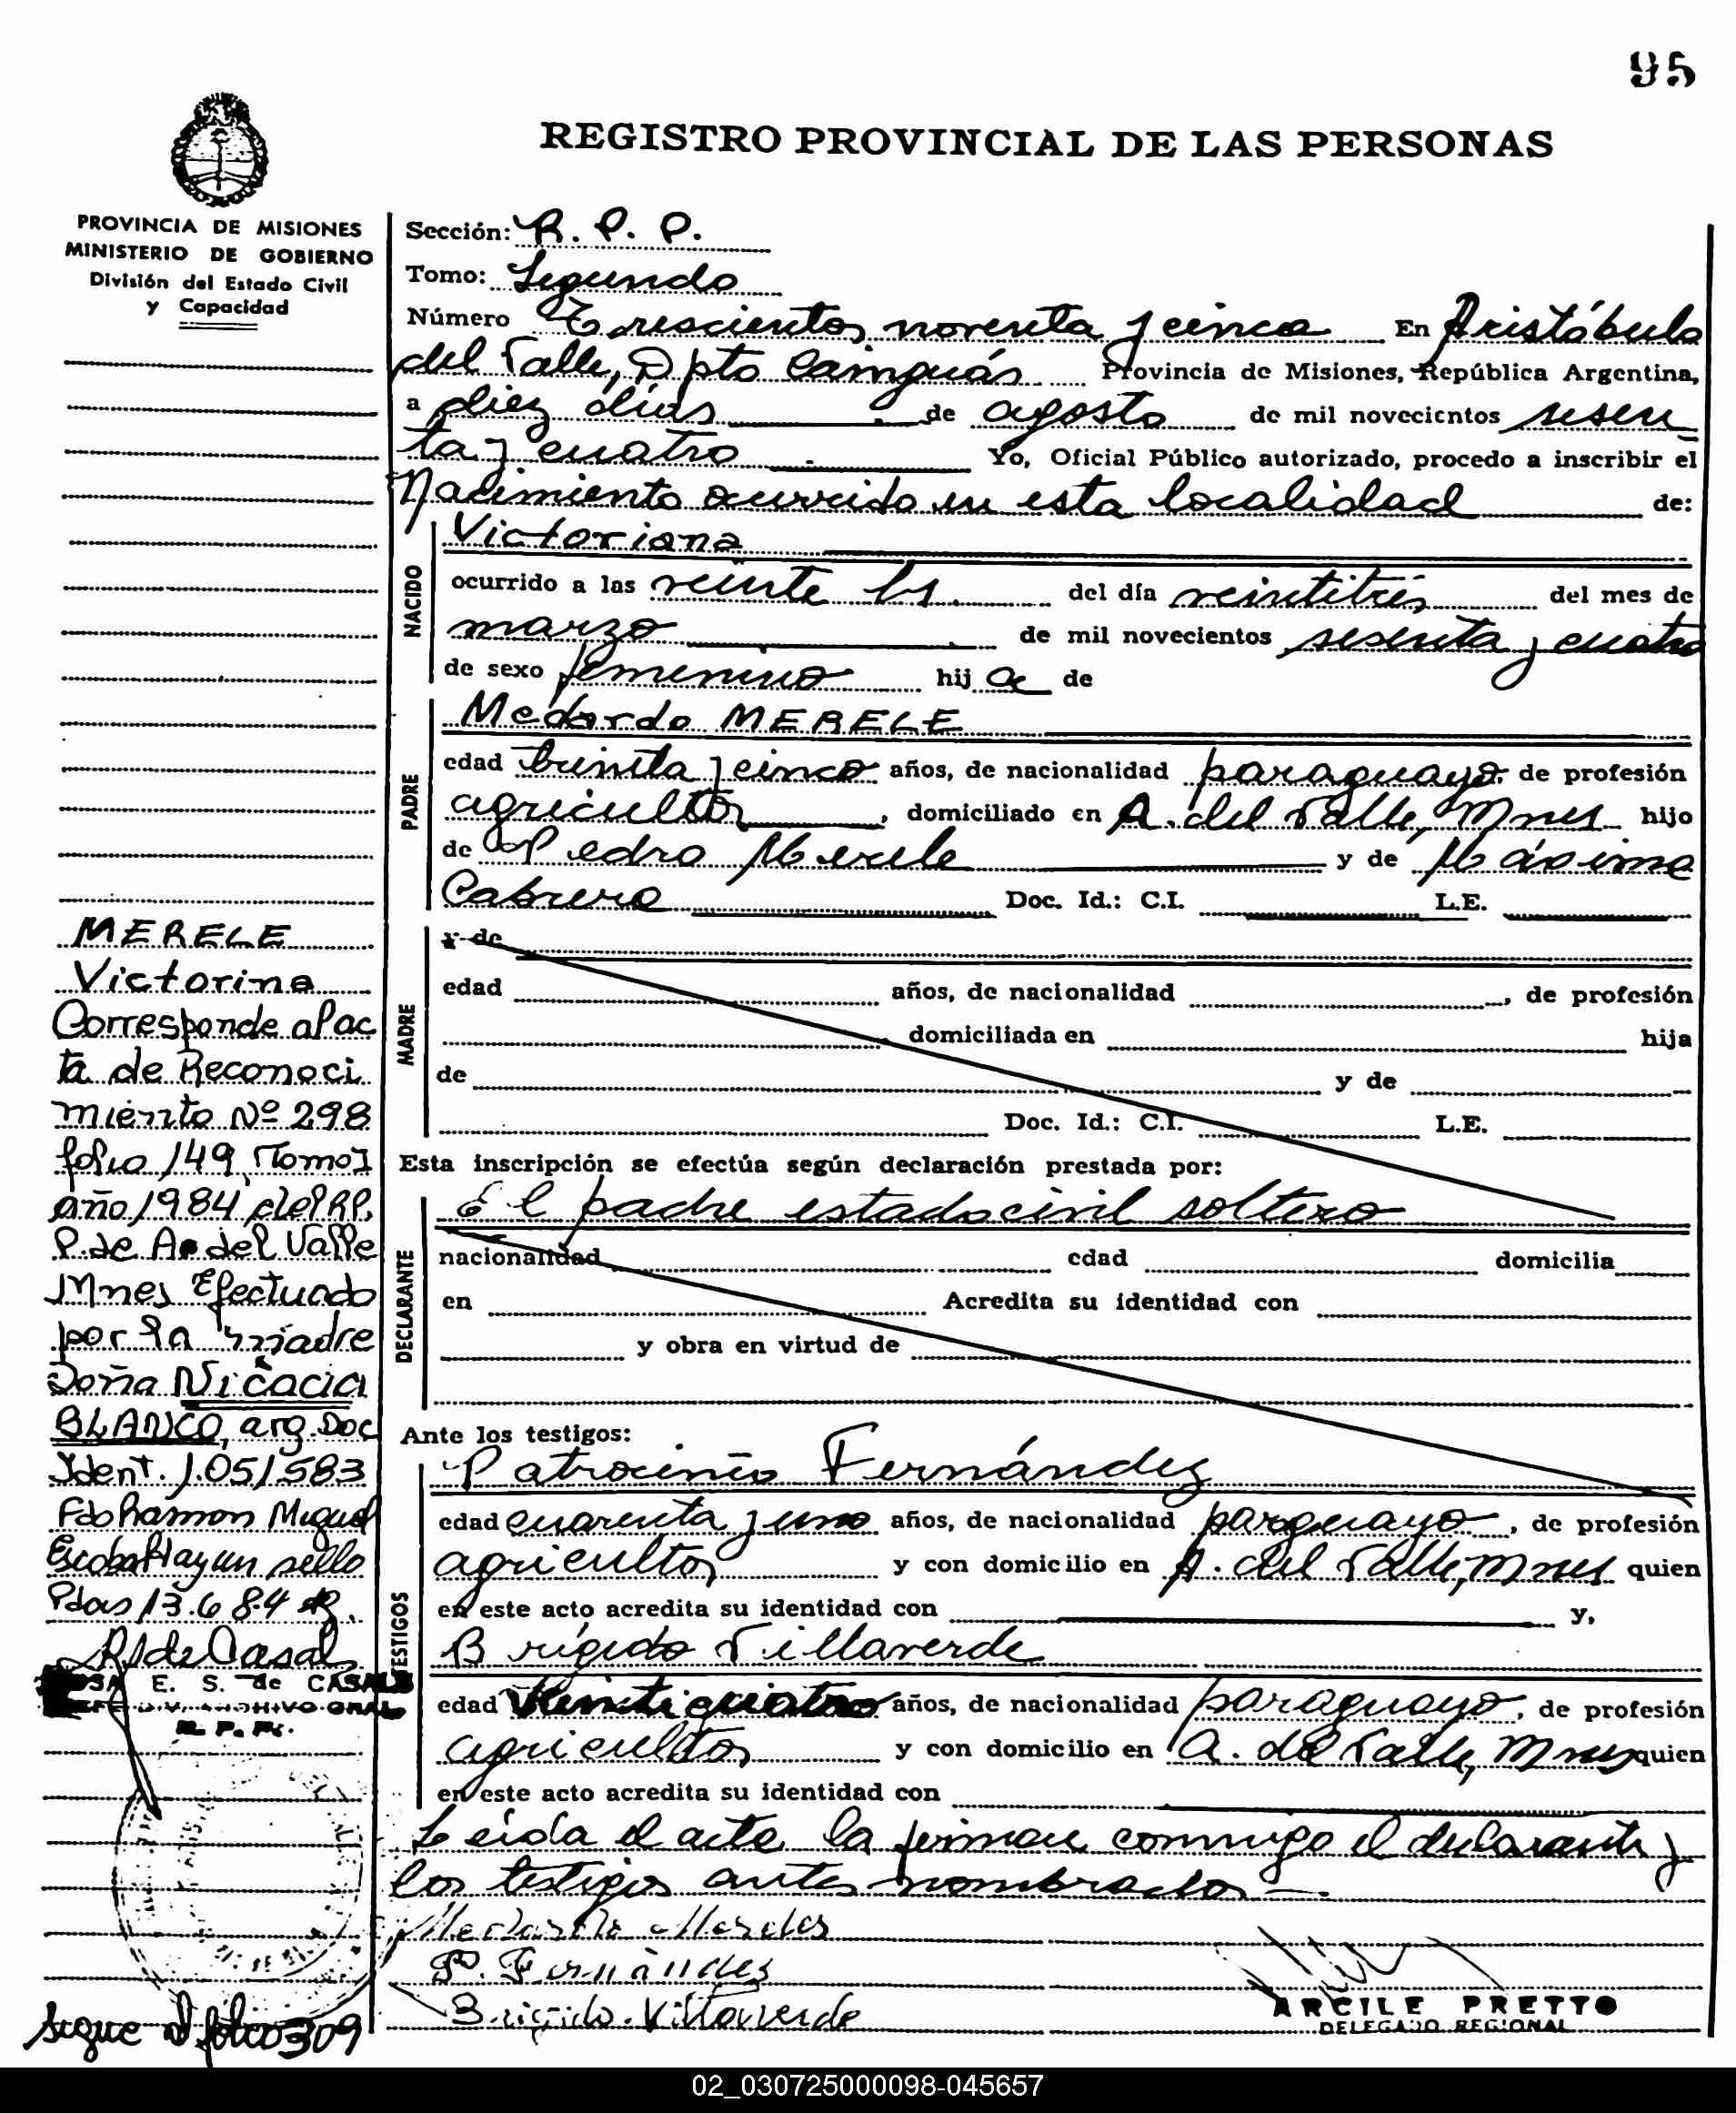 95
REGISTRO PROVINCIAL DE LAS PERSONAS
PROVINCIA DE MISIONES
MINISTERIO DE GOBIERNO
División del Estado Civil
y Capacidad
Sección: R. P. P.
Tomo: Segundo
Número Trescientos noventa y cinco En Aristóbulo
del Valle, Dpto Cainguás Provincia de Misiones, República Argentina,
a diez días de agosto de mil novecientos sesen
ta y cuatro Yo, Oficial Público autorizado, procedo a inscribir el
Nacimiento ocurrido en esta localidad de:
NACIDO
Victoriana
ocurrido a las veinte hs. del día veintitrés del mes de
marzo de mil novecientos sesenta y cuatro
de sexo femenino hij a de
PADRE
Medardo MERELE
edad treinta y cinco años, de nacionalidad paraguayo, de profesión
agricultor, domiciliado en A. del Valle, Mnes hijo
de Pedro Merele y de Máxima
Cabrera Doc. Id.: C.I. L.E.
MADRE
y de
edad años, de nacionalidad , de profesión
domiciliada en hija
de y de
Doc. Id.: C.I. L.E.
Esta inscripción se efectúa según declaración prestada por:
DECLARANTE
El padre estado civil soltero
nacionalidad edad domicilia
en Acredita su identidad con
y obra en virtud de
Ante los testigos:
TESTIGOS
Patrocinio Fernández
edad cuarenta y uno años, de nacionalidad paraguayo, de profesión
agricultor y con domicilio en A. del Valle, Mnes quien
en este acto acredita su identidad con y,
Brígido Villaverde
edad Veinticuatro años, de nacionalidad paraguayo, de profesión
agricultor y con domicilio en A. del Valle, Mnes quien
en este acto acredita su identidad con
Leída el acta la firman conmigo el declarante y
los testigos antes nombrados
Medardo Mereles
P. Fernández
Brigido Villaverde
ARCILE PRETTO
DELEGADO REGIONAL
MERELE
Victorina
Corresponde al ac
ta de Reconoci
miento Nº 298
folio 149, Tomo I
año 1984, del R.P.
P. de A. del Valle
Mnes Efectuado
por la madre
Doña Nicacia
BLANCO, arg. Doc
Ident. 1.051583
Fdo Ramon Miguel
Escobar Hay un sello
Pdas 13.6 84
R. S de Casal
E. S. de CASALS
ARCHIVO GRAL
R. P. P.
sigue al folio 309
02_030725000098-045657